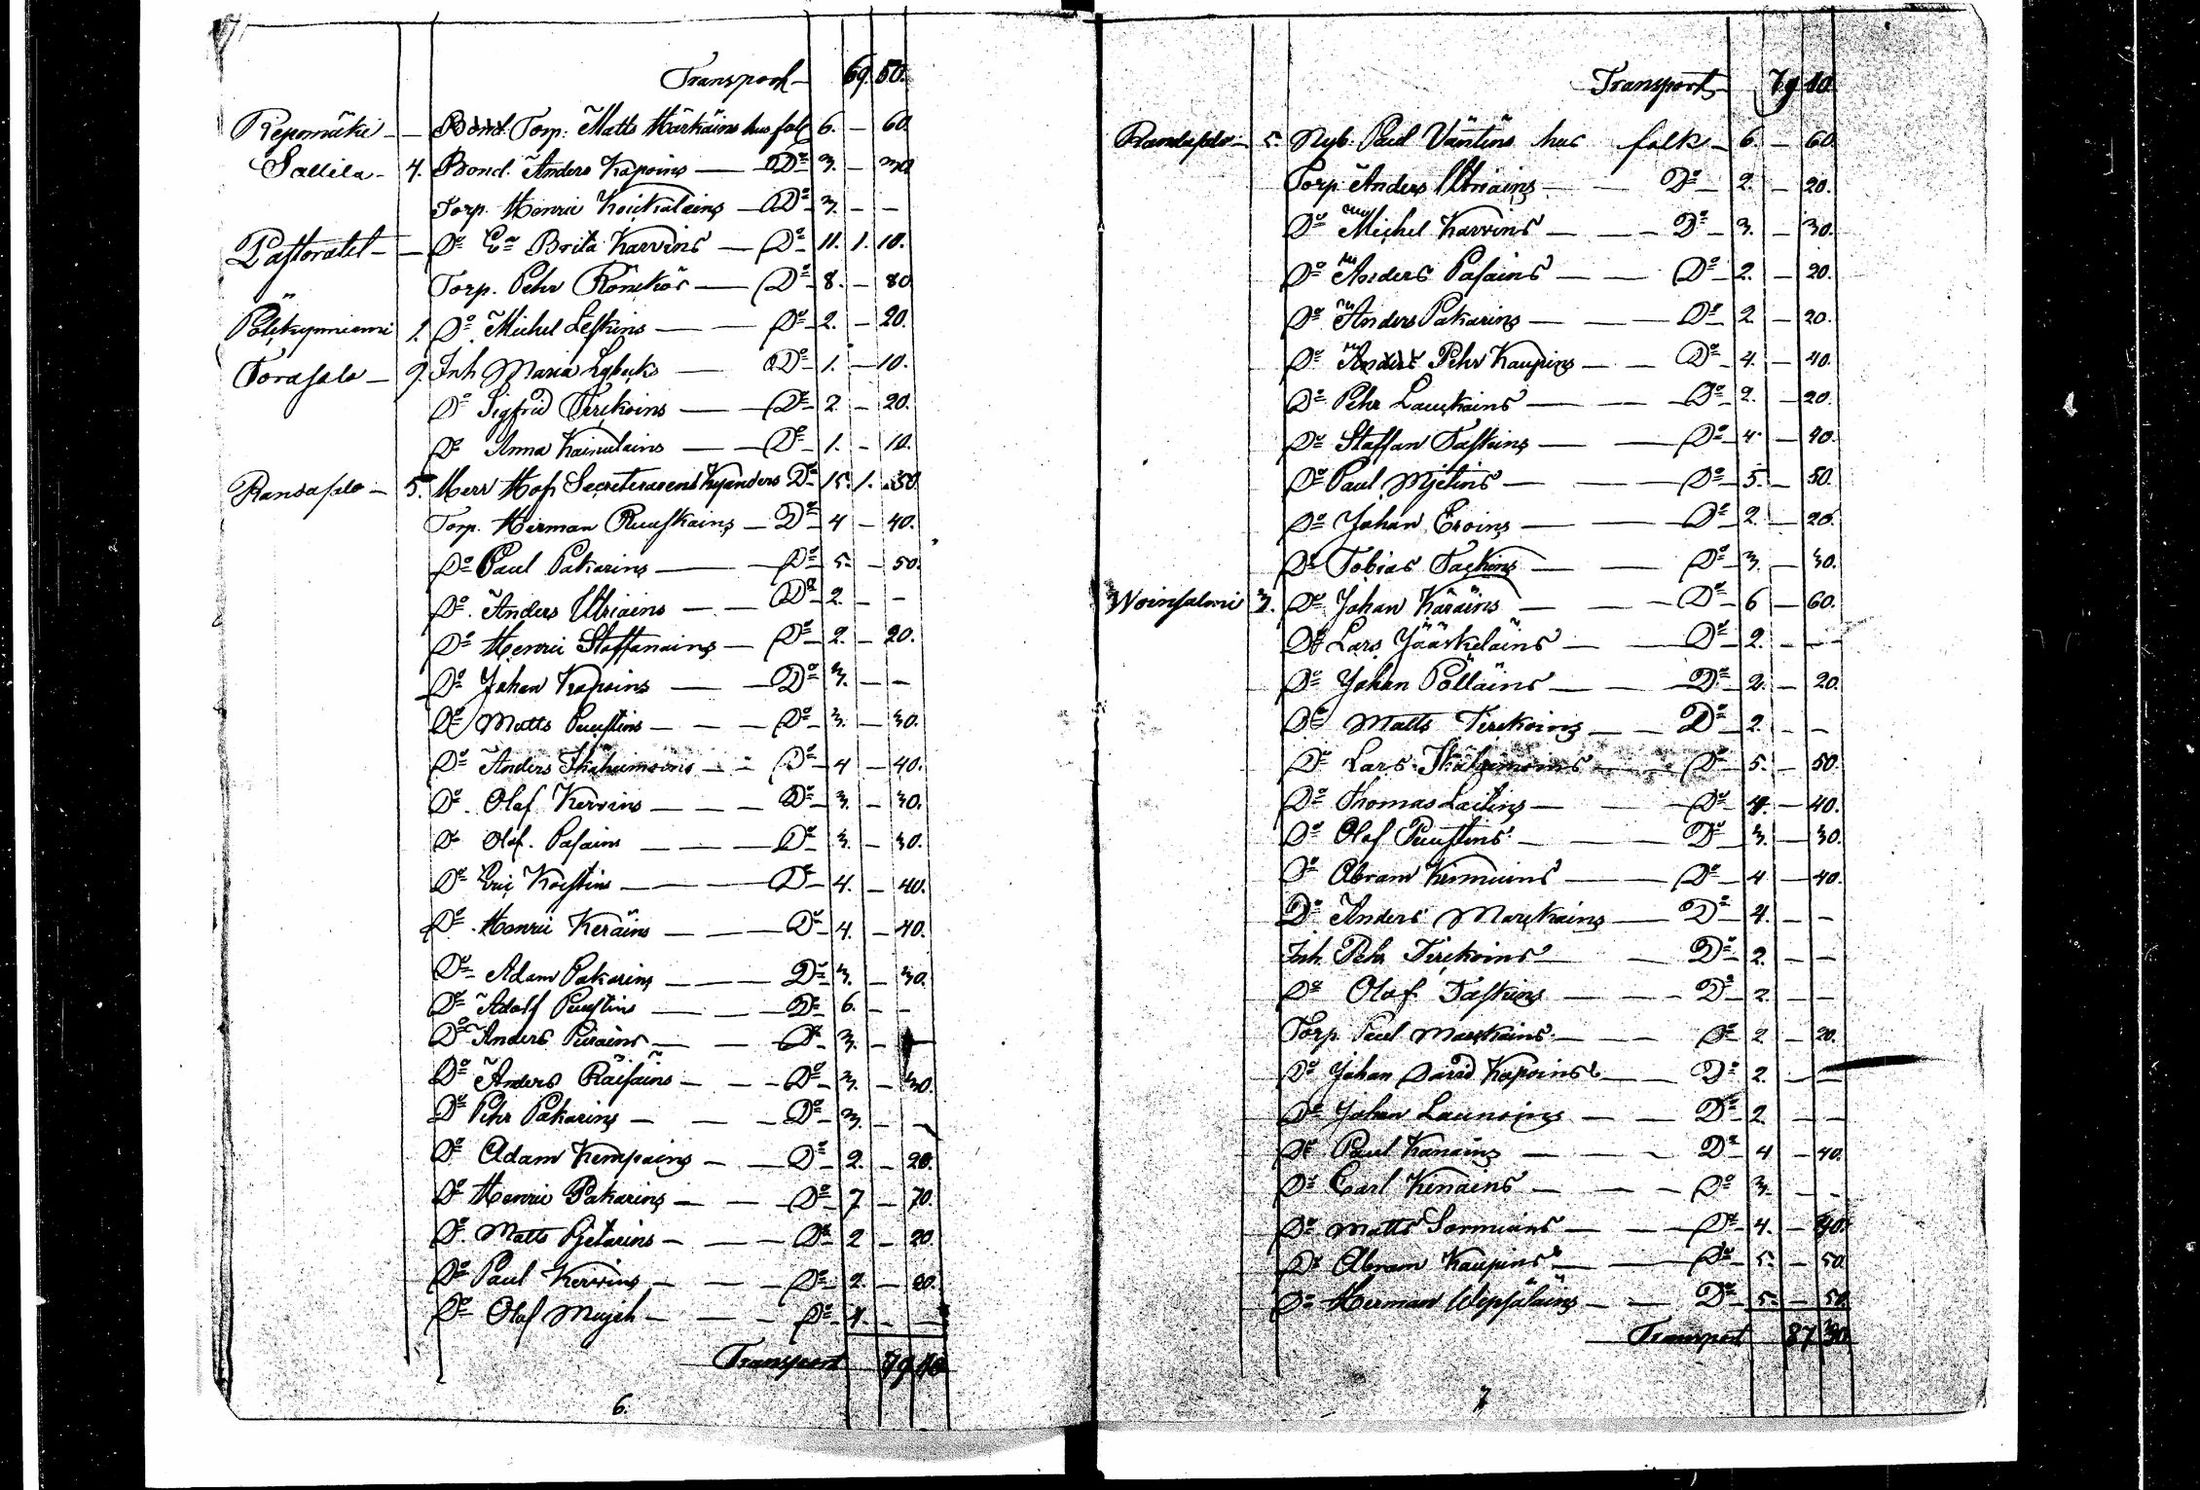 Transport 69. 50.
Repomäki — — Bond. Torp. Matts Härkäins hus folk 6. — 60.
Sallila — 4. Bond. Anders Kapoins — Do 3. — 30
Torp. Henric Koickalains — Do 3. — —
Pastoratet — — Do Ea Brita Karvins — Do 11. 1. 10.
Torp. Pehr Rönckös — Do 8. — 80
1. Do Michel Leskins — — Do 2. — 20.
Torasalo — 9. Inh Maria — Do 1. — 10.
Do Sigfrid Tirckoins — Do 2 — 20.
Do Anna Kainulains — Do 1. — 10.
Randasalo — 5. Herr Hof Secreterarens Kyanders Do 15. 1. 50.
Torp. Herman Ruuskains — Do 4 — 40.
Do Paul Pakarins — Do 5. — 50.
Do Anders Utriains — — Do 2. — —
Do Henric Staffanains — Do 2. — 20.
Do Johan Kapoins — — Do 3. — —
Do Matts Puustins — — — Do 3. — 30.
Do Anders Ikäheimoins — — Do 4 — 40.
Do Olof Kervins — — — Do 3. — 30.
Do Olof Pasains — — — Do 3. — 30.
Do Eric Koistins — — — Do 4. — 40.
Do Henric Keräins — — — Do 4. — 40.
Do Adam Pakarins — — — Do 3. — 30.
Do Adolf Puustins — — Do 6. — —
Do Anders Piirains — — Do 3. — —
Do Anders Räisäins — — — Do 3. — 30.
Do Pehr Pakarins — — — Do 3. — —
Do Adam Kempains — — Do 2. — 20.
Do Henric Pakarins — — Do 7 — 70.
Do Matts Pjetarins — — — Do 2 — 20.
Do Paul Kervins — — — Do 2. — 20.
Do Olof — — — Do 4. — —
Transport 79 10
6.
Transport 79 10.
Randasalo — 5. Nyb. Paul Väntins hus folk — 6. — 60.
Torp. Anders Utriains — — Do — 2. — 20.
Do Michel Karvins — — — Do — 3. — 30.
Do Anders Pasains — — Do — 2. — 20.
Do Anders Pakarins — — — Do 2 — 20.
Do Anders Pehr Kaupins — — Do — 4. — 40.
Do Pehr Lauckains — — — Do — 2. — 20.
Do Staffan Taskins — — Do — 4. — 40.
Do Paul Mjetins — — — Do — 5. — 50.
Do Johan Eroins — — — Do 2. — 20.
Do Tobias Tackins — — Do 3. — 30.
Woinsalmi 3. Do Johan Käräins — — Do — 6 — 60.
Do Lars Jääskeläins — — Do 2. — —
Do Johan Pölläins — — — Do 2. — 20.
Do Matts Tirckoins — — Do 2. — —
Do Lars Ikäheimoins — Do 5. — 50.
Do Thomas Laitins — — Do 4. — 40.
Do Olof Puustins — — Do 3. — 30.
Do Abram — — Do 4 — 40.
Do Anders Marckains — Do 4. — —
Inh. Pehr Tirckoins — — Do 2. — —
Do Olof Taskins — — — Do 2. — —
Torp. Paul Marckains — — Do — 2 — 20.
Do Johan David Kapoins — — Do 2. — —
Do Johan Launoins — — Do 2. — —
Do Paul Kanains — — — Do — 4 — 40.
Do Carl Kinains — — — Do 3. — —
Do Matts Sormuins — — Do 4. — 40.
Do Abram Kaupins — — Do 5. — 50
Do Herman Wepsäläins — — Do 5. — 50
Transport 87 30.
7